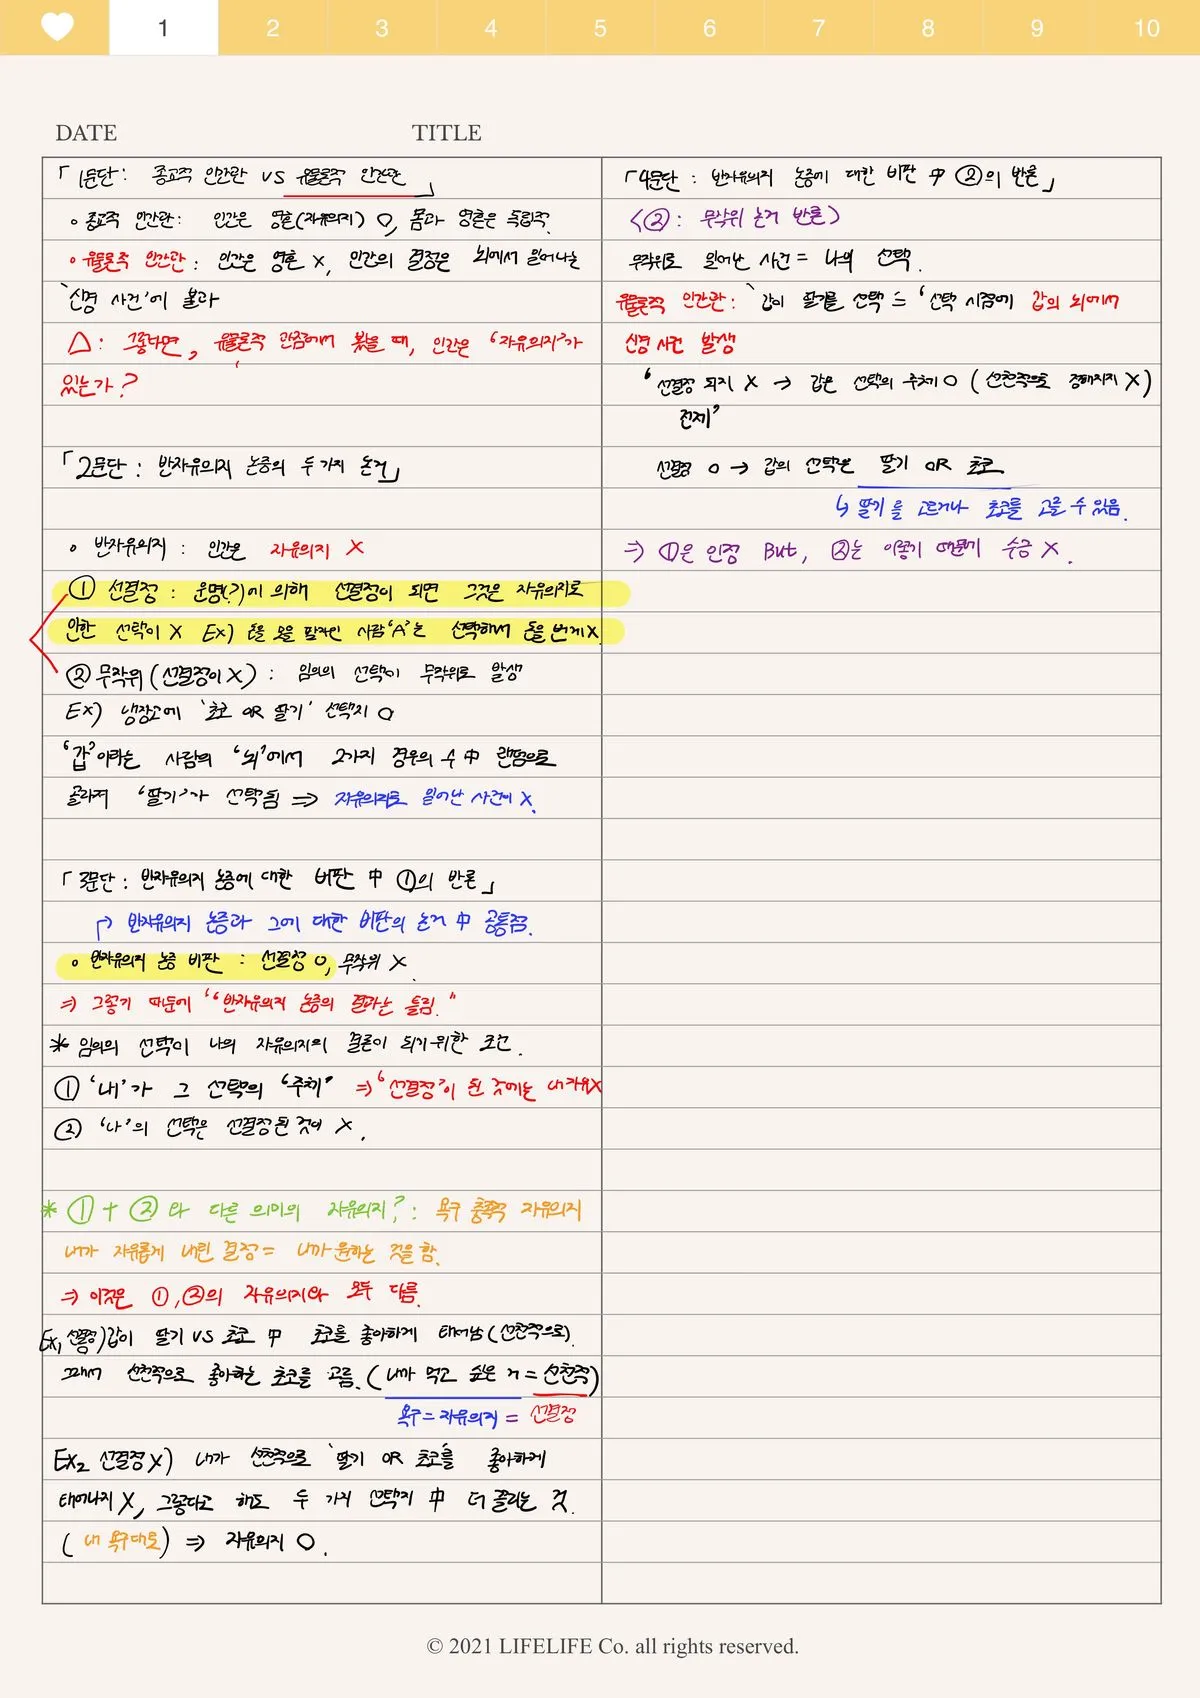 1 2 3 4 5 6 7 8 9 10
DATE TITLE
「1문단: 종교적 인간관 VS 유물론적 인간관」
◦종교적 인간관: 인간은 영혼(자유의지) O, 몸과 영혼은 독립적.
◦유물론적 인간관: 인간은 영혼 X, 인간의 결정은 뇌에서 일어나는
'신경 사건'에 불과
△: 그렇다면, 유물론적 관점에서 봤을 때, 인간은 '자유의지'가
있는가?
「2문단: 반자유의지 논증의 두 가지 논거」
◦ 반자유의지: 인간은 자유의지 X
① 선결정: 운명(?)에 의해 선결정이 되면 그것은 자유의지로
인한 선택이 X Ex) 돈을 모을 팔자인 사람 'A'는 선택해서 돈을 번게 X
② 무작위(선결정이 X): 임의의 선택이 무작위로 발생
Ex) 냉장고에 '초코 OR 딸기' 선택지 O
'갑'이라는 사람의 '뇌'에서 2가지 경우의 수 中 랜덤으로
골라져 '딸기'가 선택됨 ⇒ 자유의지로 일어난 사건이 X.
「3문단: 반자유의지 논증에 대한 비판 中 ①의 반론」
↱ 반자유의지 논증과 그에 대한 비판의 논거 中 공통점.
◦ 반자유의지 논증 비판 : 선결정 O, 무작위 X.
⇒ 그렇기 때문에 "반자유의지 논증의 결과는 틀림."
* 임의의 선택이 나의 자유의지의 결론이 되기 위한 조건.
① '내'가 그 선택의 '주체' ⇒ '선결정'이 된 것에는 내 자유X
② '나'의 선택은 선결정된 것이 X.
* ① + ② 와 다른 의미의 자유의지?: 욕구 충족적 자유의지
내가 자유롭게 내린 결정 = 내가 원하는 것을 함.
⇒ 이것은 ①,②의 자유의지와 모두 다름.
Ex₁ 선결정) 갑이 딸기 VS 초코 中 초코를 좋아하게 태어남(선천적으로).
그래서 선천적으로 좋아하는 초코를 고름. (내가 먹고 싶은 거 = 선천적)
욕구 = 자유의지 = 선결정
Ex₂ 선결정 X) 내가 선천적으로 '딸기 OR 초코'를 좋아하게
태어나지 X, 그렇다고 해도 두 가지 선택지 中 더 끌리는 것.
(내 욕구대로) ⇒ 자유의지 O.
「4문단: 반자유의지 논증에 대한 비판 中 ②의 반론」
<②: 무작위 논거 반론>
무작위로 일어난 사건 = 나의 선택.
유물론적 인간관: '갑이 딸기를 선택 = '선택 시점에 갑의 뇌에서
신경 사건 발생
'선결정 되지 X → 갑은 선택의 주체 O (선천적으로 정해지지 X)
전제'
선결정 O → 갑의 선택은 딸기 OR 초코
↳ 딸기를 고르거나 초코를 고를 수 있음.
⇒ ①은 인정 But, ②는 이렇기 때문에 수긍 X.
© 2021 LIFELIFE Co. all rights reserved.